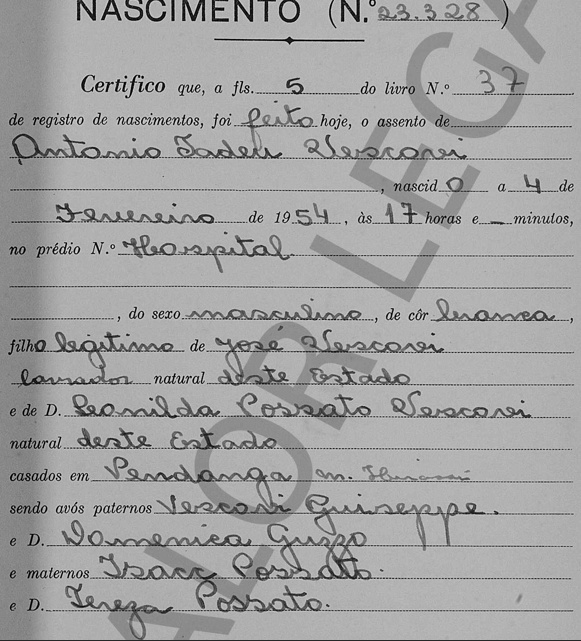 NASCIMENTO (N.º 23.328)
Certifico que, a fls. 5 do livro N.º 37
de registro de nascimentos, foi feito hoje, o assento de
Antonio Tadeu Vescovi
, nascido a 4 de
Fevereiro de 1954, às 17 horas e — minutos,
no prédio N.º Hospital
, do sexo masculino, de côr branca,
filho legitimo de José Vescovi
lavrador natural deste Estado
e de D. Leonilda Possato Vescovi
natural deste Estado
casados em Pendanga m.
sendo avós paternos Vescovi Guiseppe.
e D. Domenica Guzzo
e maternos Isacc Possatto.
e D. Tereza Possato.
VALOR LEGA